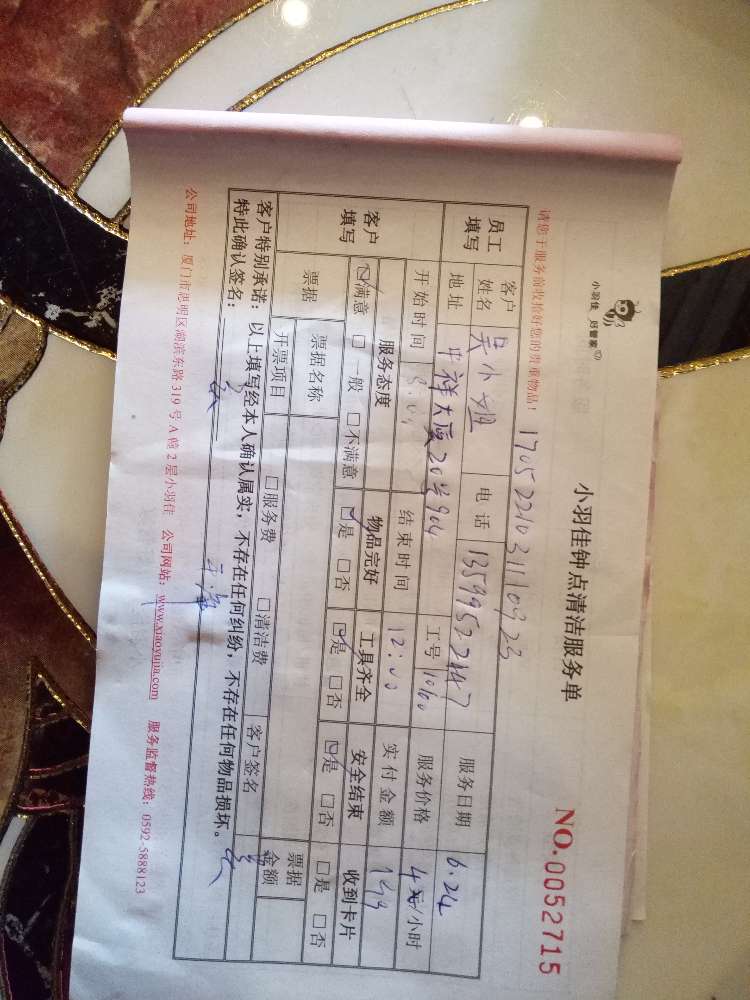 小羽佳 好管家
小羽佳钟点清洁服务单
NO.0052715
请您于服务前收拾好您的贵重物品！
员工填写 客户姓名 吴小姐 电话 服务日期 6.24
地址 中祥大厦20 904 工号 1060 服务价格 元/小时
开始时间 结束时间 12:00 实付金额
客户填写 服务态度 物品完好 工具齐全 安全结束 收到卡片
☑满意 □一般 □不满意 ☑是 □否 ☑是 □否 ☑是 □否 □是 □否
票据 票据名称 票据金额
开票项目 □服务费 □清洁费 客户签名
客户特别承诺：以上填写经本人确认属实，不存在任何纠纷，不存在任何物品损坏。
特此确认签名：
公司地址：厦门市思明区湖滨东路319号A幢2层小羽佳 公司网站：www.xiaoyujia.com 服务监督热线：0592-5888123